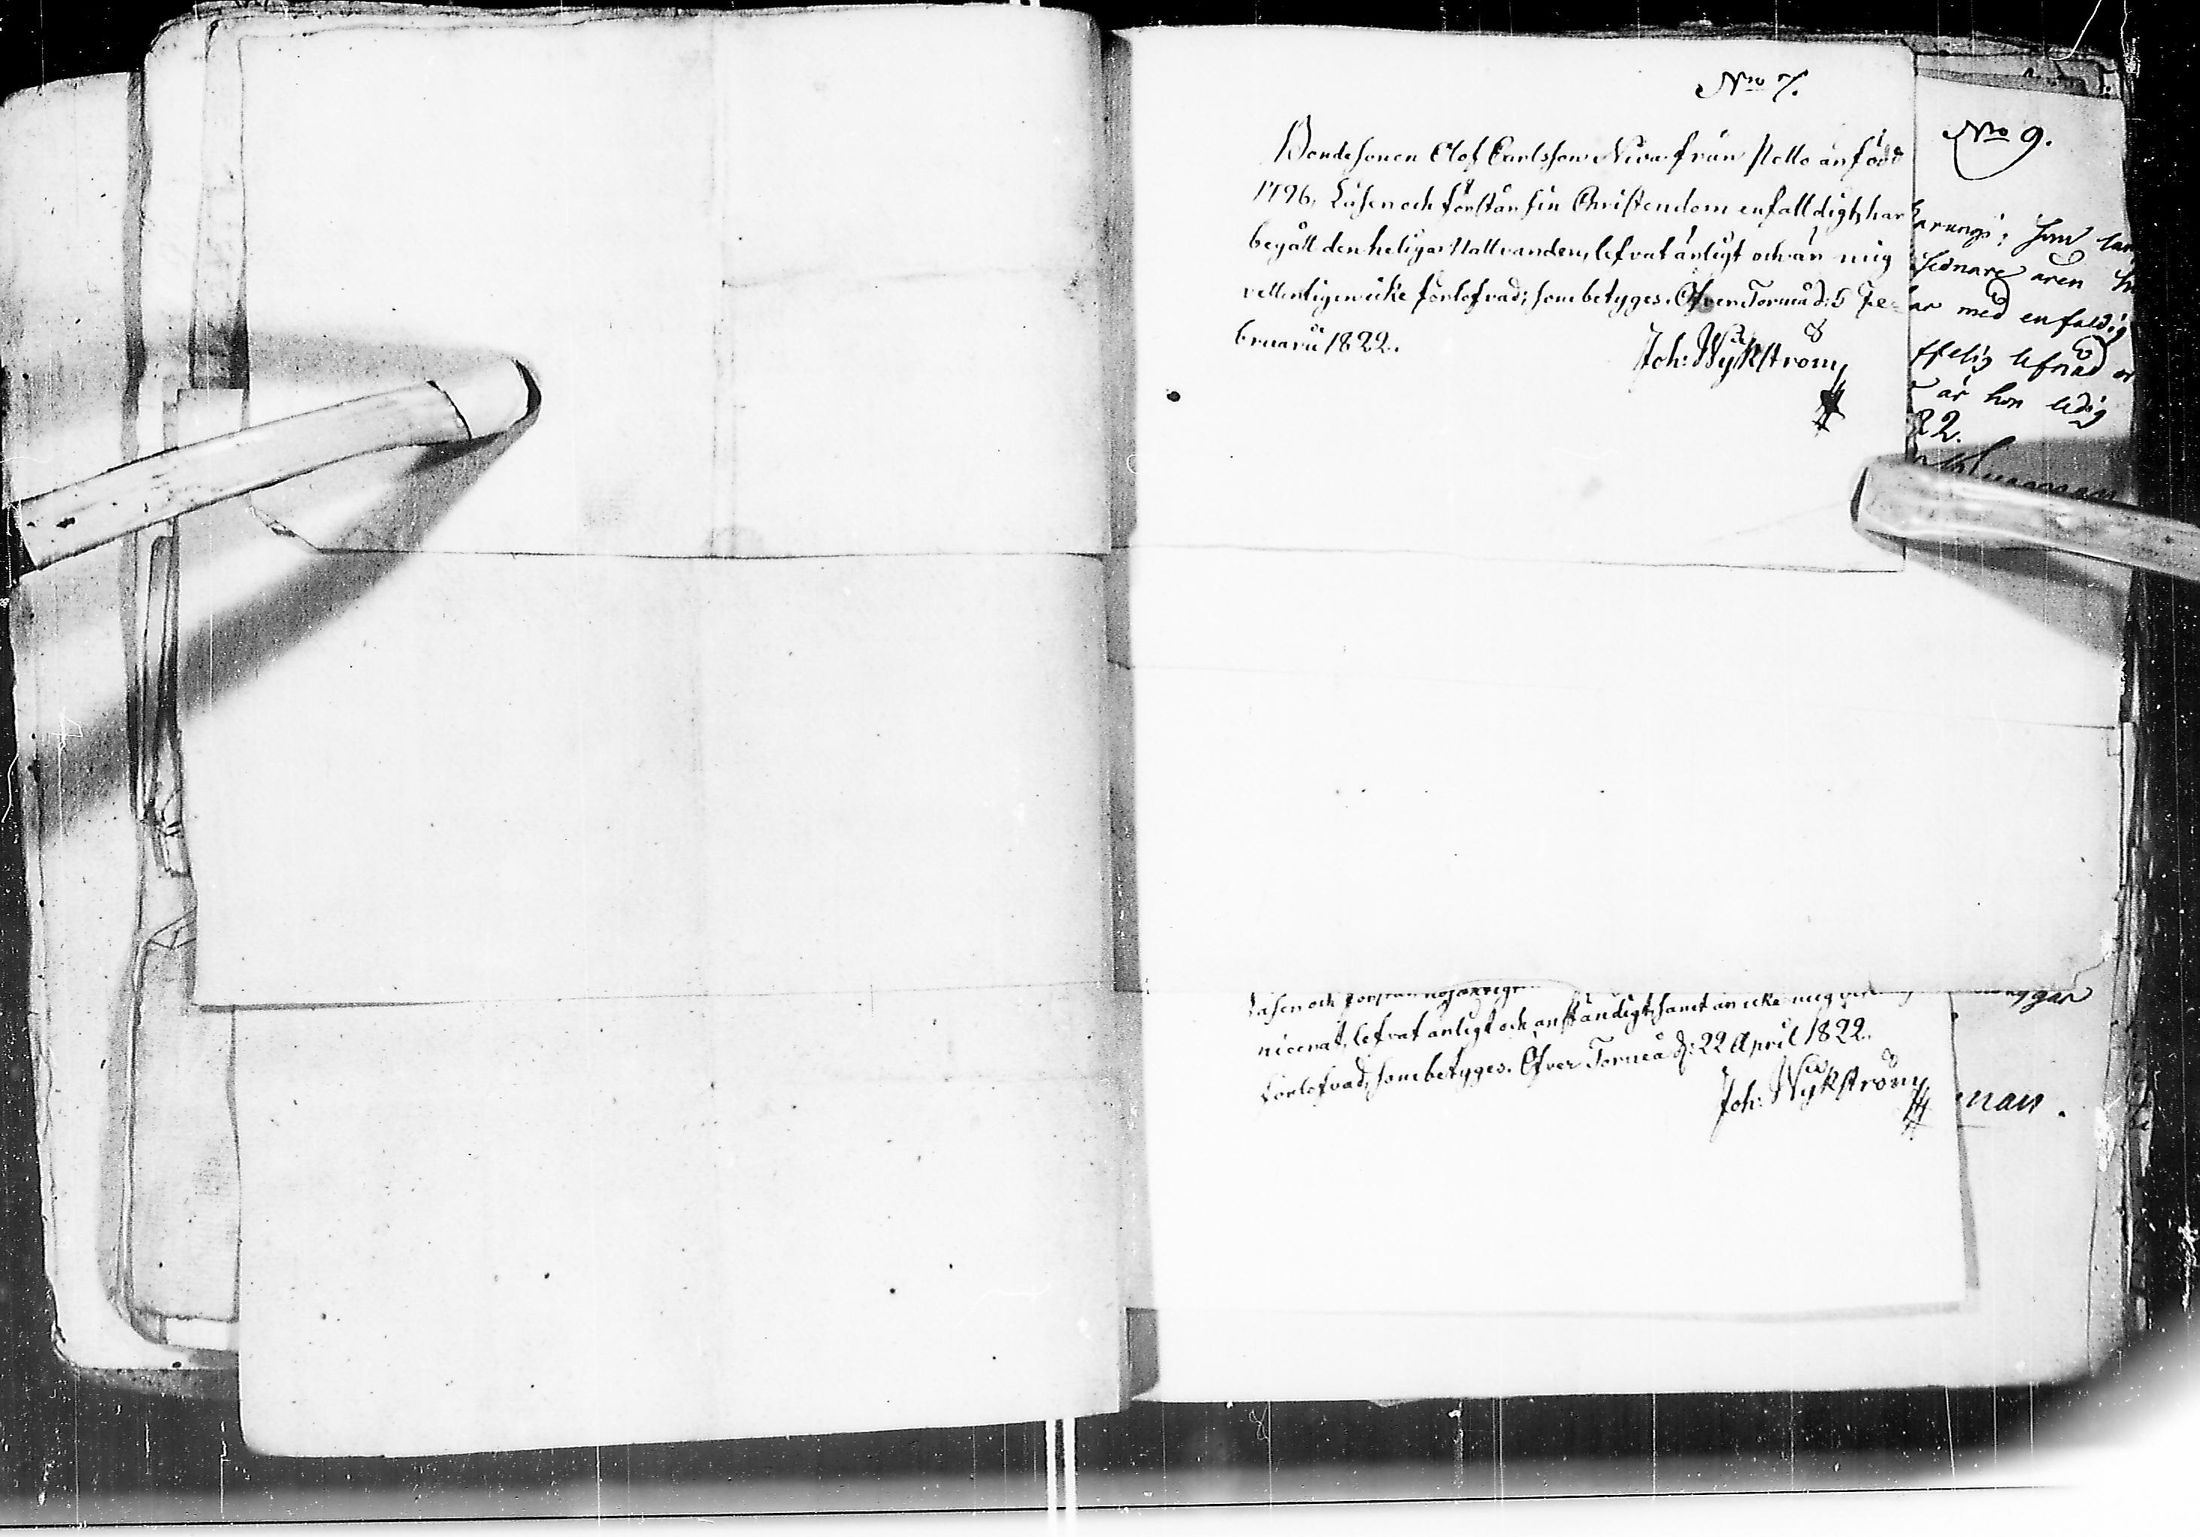 No 7.
Bondesonen Olof Carlsson Niva från Pello är född
1796, Läser och förstår sin Christendom enfalldigt, har
begått den heliga Nattvarden, lefvat ärligt och är mig
vetterligen icke förlofvad; som betyges. Öfver Torneå d: 5 Fe-
bruarii 1822.
Joh: Wykström
No 9.
Karungi; som
sednare åren
har med enfaldig
lefnad
är hon ledig
22.
Läser och
niceerat, lefvat ärligt och anständigt, samt är icke mig
förlofvad; som betyges. Öfver Torneå d: 22 April 1822.
Joh: Wykström
man.